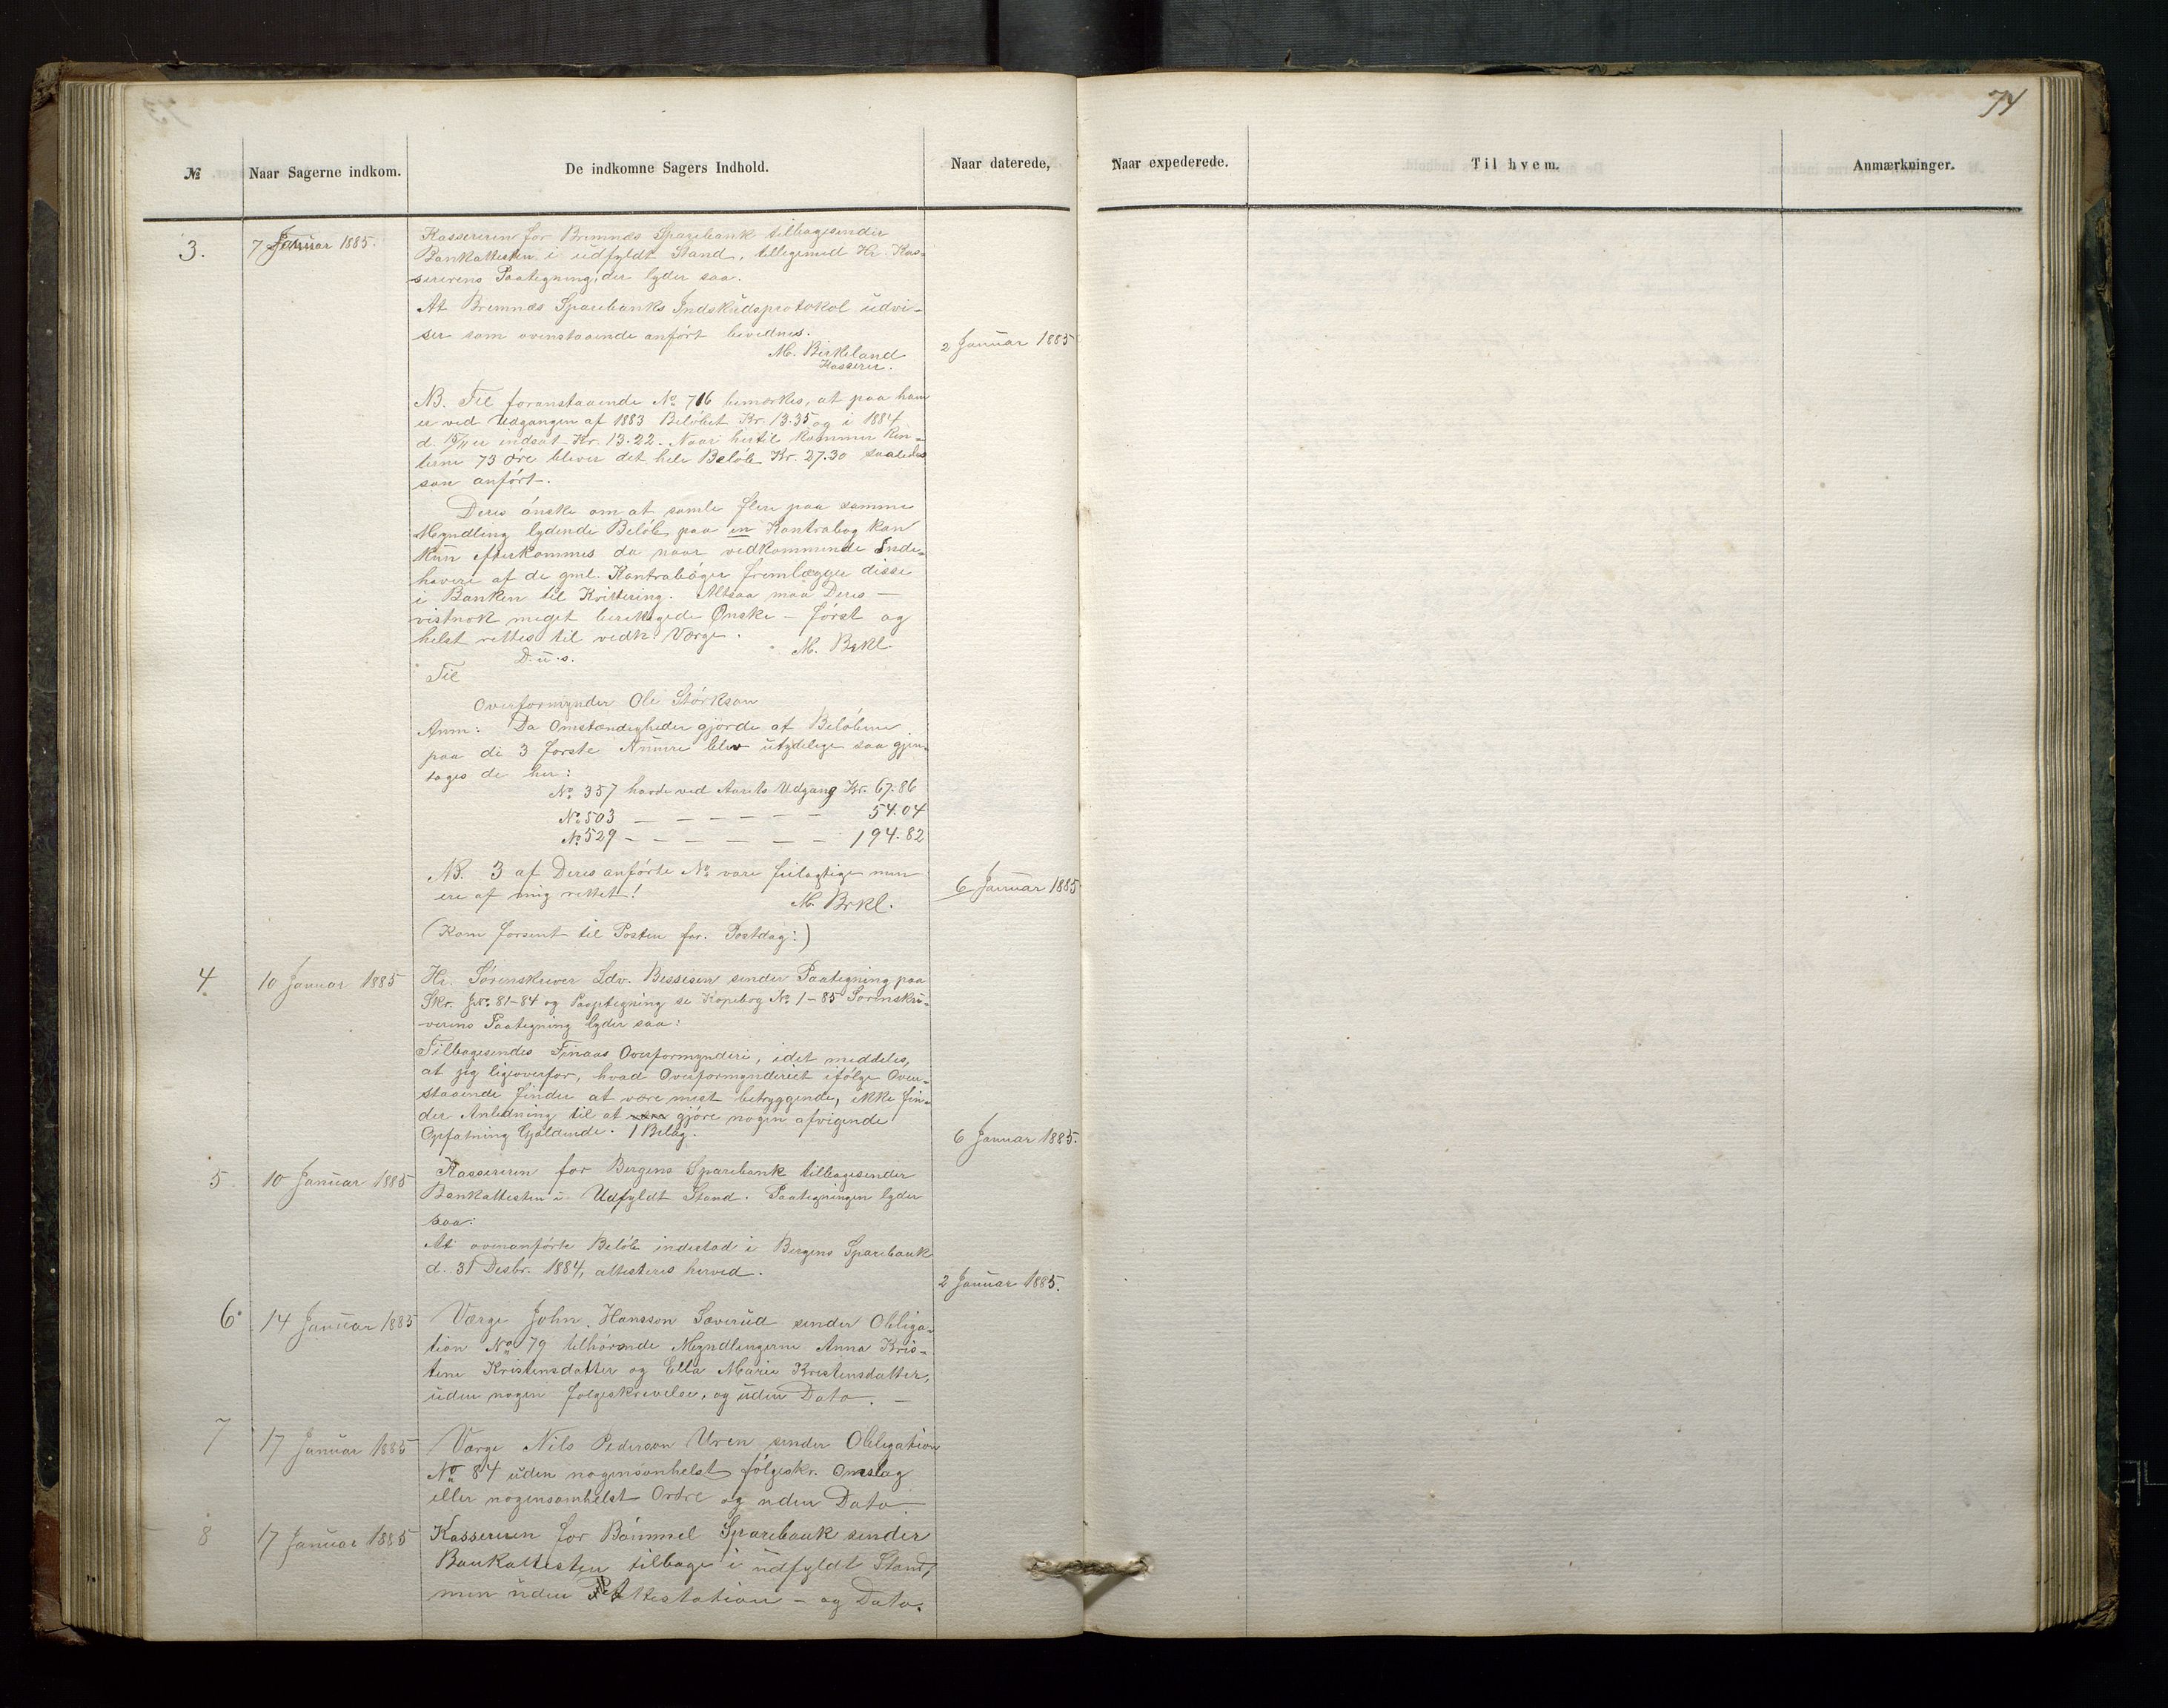 74
№ Naar Sagerne indkom. De indkomne Sagers Indhold. Naar daterede, Naar expederede. Til hvem. Anmærkninger.
3. 7 Januar 1885. Kassereren for Bremnæs Sparebank tilbagesender
Bankattesten i udfyldt Stand, tillegemed Hr. Kas-
sererens Paategning, der lyder saa.
At Bremnæs Sparebanks Indskudsprotokol udvi-
ser som ovenstaaende anført bevidnes. 2 Januar 1885
M. Birkeland
Kasserer.
NB. Til foranstaaende No 716 bemærkes, at paa ham
er ved Udgangen af 1883 Beløbet Kr. 13.35 og i 1884
d. er indsat Kr. 13.22. Naar hertil kommer Ren-
terne 73 Øre bliver det hele Beløb Kr. 27.30 saaledes
som anført.
Deres ønske om at samle flere paa samme
Myndling lydende Beløb paa en Kontrabog kan
kun efterkommes da naar vedkommende Inde-
havere af de gml. Kontrabøger fremlægger disse
i Banken til Kvittering. Altsaa maa Deres —
vistnok meget berettigede Ønske — først og
helst rettes til vedk. Værge.
D.u.s. M. Brkl.
Til
Overformynder Ole Størkson
Anm: Da Omstændigheder gjorde at Beløbene
paa de 3 første Numre blev utydelige saa gjen-
tages de her:
No. 357 havde ved Aarets Udgang Kr. 67.86
No. 503 — — — — — — 54.04
No. 529 — — — — — — 194.82
NB. 3 af Deres anførte No. vare feilagtige men
ere af mig rettet! 6 Januar 1885
M. Brkl.
(Kom forsent til Posten for. Postdag:)
4 10 Januar 1885 Hr. Sørenskriver Ldv. Bessesen sender Paategning paa
Skr. JNo. 81-84 og Paaptegning se Kopibog No. 1-85 Sorenskri-
verens Paategning lyder saa:
Tilbagesendes Finaas Overformynderi, idet meddeles,
at jeg ligeoverfor, hvad Overformynderiet ifølge Oven-
staaende finder at være mest betryggende, ikke fin-
der Anledning til at gjøre nogen afvigende
Opfatning Gjældende. 1 Bilag. 6 Januar 1885.
5 10 Januar 1885 Kassereren for Bergens Sparebank tilbagesender
Bankattesten i Udfyldt Stand. Paategningen lyder
saa:
At ovenanførte Beløb indestod i Bergens Sparebank
d. 31 Desbr. 1884, attesteres herved. 2 Januar 1885.
6 14 Januar 1885 Værge John Hansson Sæverud sender Obliga-
tion No 79 tilhørende Myndlingerne Anna Kris-
tine Kristensdatter og Ella Marie Kristensdatter,
uden nogen følgeskrivelse, og uden Dato. —
7 17 Januar 1885 Værge Nils Pederson Uren sender Obligation
No 84 uden nogensomhelst følgeskr. Omslag
eller nogensomhelst Ordre og uden Dato
8 17 Januar 1885 Kassereren for Bømmel Sparebank sender
Bankattesten tilbage i udfyldt Stand,
men uden Attestation — og Dato.